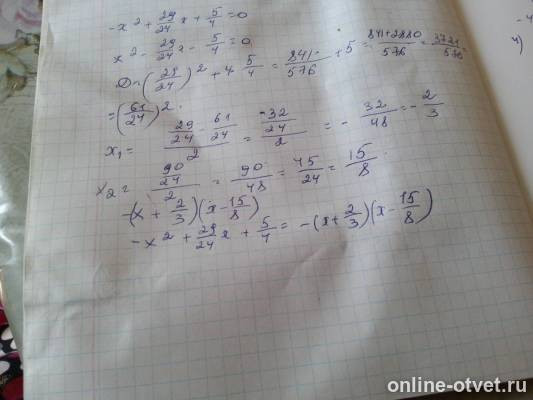 -x² + 29/24 x + 5/4 = 0
x² - 29/24 x - 5/4 = 0
D = (29/24)² + 4 5/4 = 841/576 + 5 = (841+2880)/576 = 3721/576 =
= (61/24)².
x₁ = (29/24 - 61/24)/2 = (-32/24)/2 = - 32/48 = - 2/3
x₂ = (90/24)/2 = 90/48 = 45/24 = 15/8
-(x + 2/3)(x - 15/8)
-x² + 29/24 x + 5/4 = -(x + 2/3)(x - 15/8)
4)
online-otvet.ru